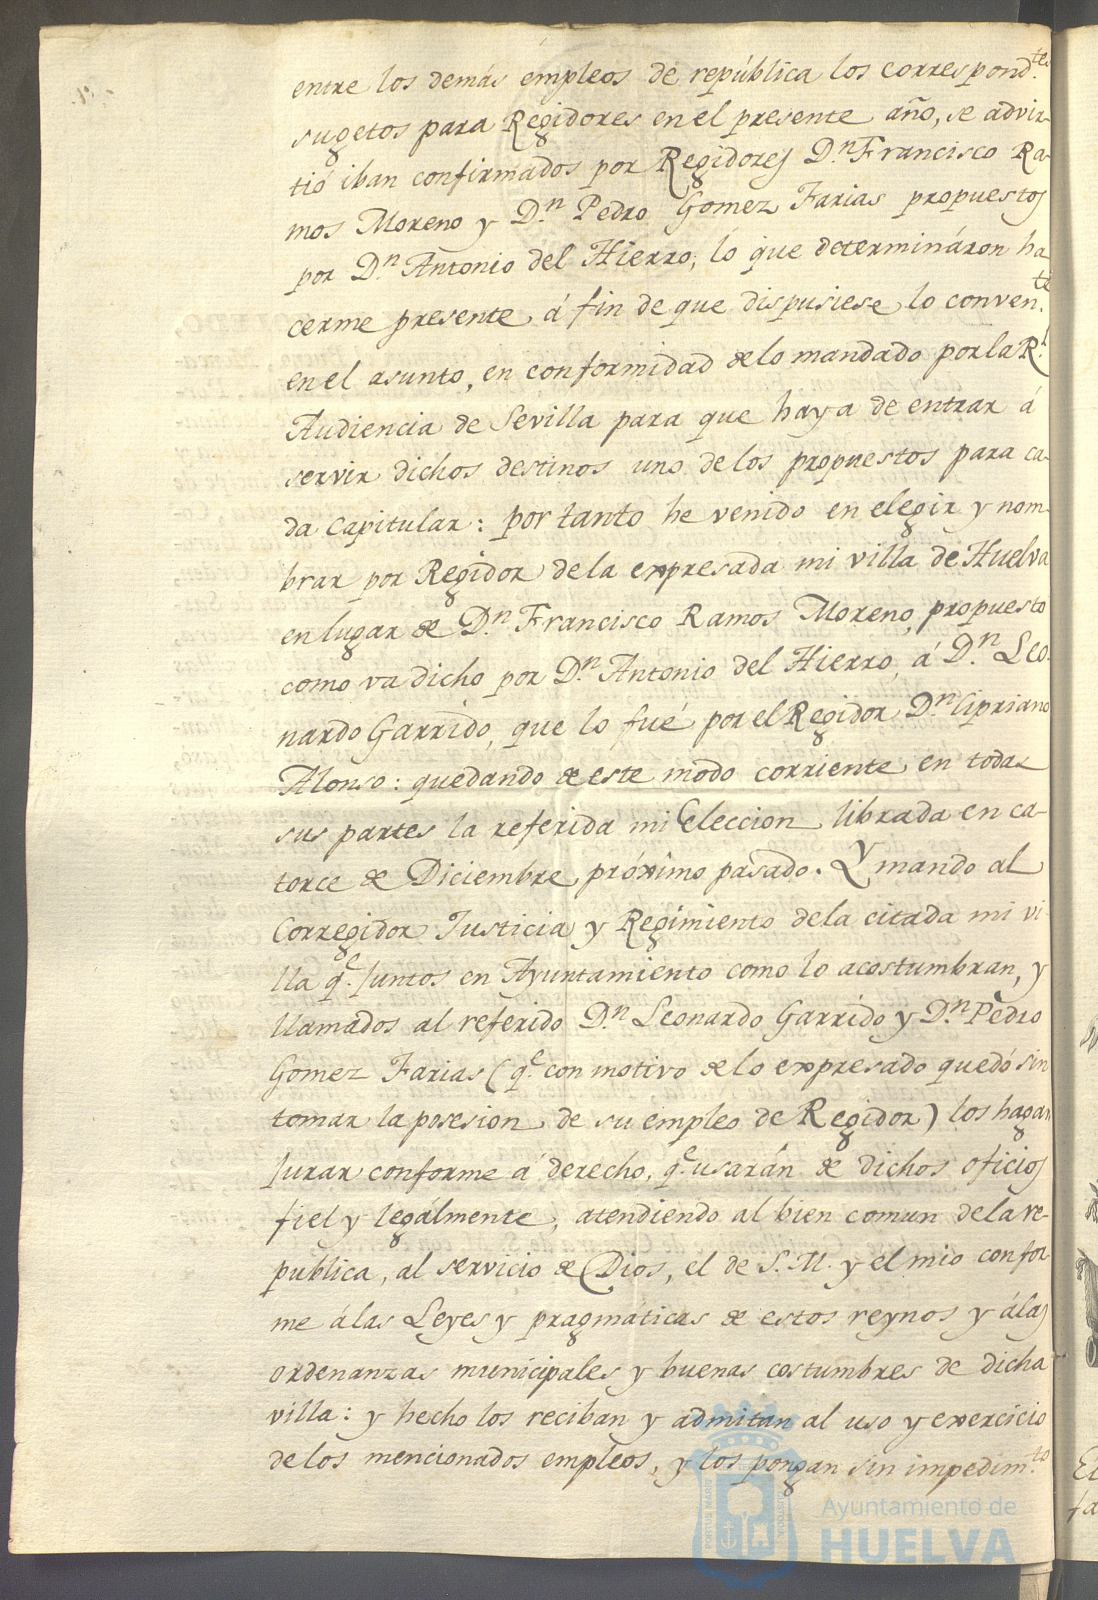 entre los demás empleos de república los correspond.tes
sugetos para Regidores en el presente año, se advir-
tió iban confirmados por Regidores D.n Francisco Ra-
mos Moreno y D.n Pedro Gomez Farias propuestos
por D.n Antonio del Hierro, lo que determináron ha-
cerme presente á fin de que dispusiese lo conven.te
en el asunto, en conformidad de lo mandado por la R.l
Audiencia de Sevilla para que haya de entrar á
servir dichos destinos uno de los propuestos para ca-
da Capitular: por tanto he venido en elegir y nom-
brar por Regidor de la expresada mi villa de Huelva
en lugar de D.n Francisco Ramos Moreno, propuesto
como va dicho por D.n Antonio del Hierro, á D.n Leo-
nardo Garrido, que lo fué por el Regidor D.n Cipriano
Alonso: quedando de este modo corriente en todas
sus partes la referida mi Eleccion librada en ca-
torce de Diciembre próximo pasado. Y mando al
Corregidor Justicia y Regimiento de la citada mi vi-
lla q.e juntos en Ayuntamiento como lo acostumbran, y
llamados al referido D.n Leonardo Garrido y D.n Pedro
Gomez Farias (q.e con motivo de lo expresado quedó sin
tomar la posesion de su empleo de Regidor) los hagan
jurar conforme á derecho, q.e usarán de dichos oficios
fiel y legálmente, atendiendo al bien comun de la re-
publica, al servicio de Dios, el de S. M. y el mio confor-
me á las Leyes y pragmáticas de estos reynos y á las
ordenanzas municipales y buenas costumbres de dicha
villa: y hecho los reciban y admitan al uso y exercicio
de los mencionados empleos, y los pongan sin impedim.to
Ayuntamiento de
HUELVA